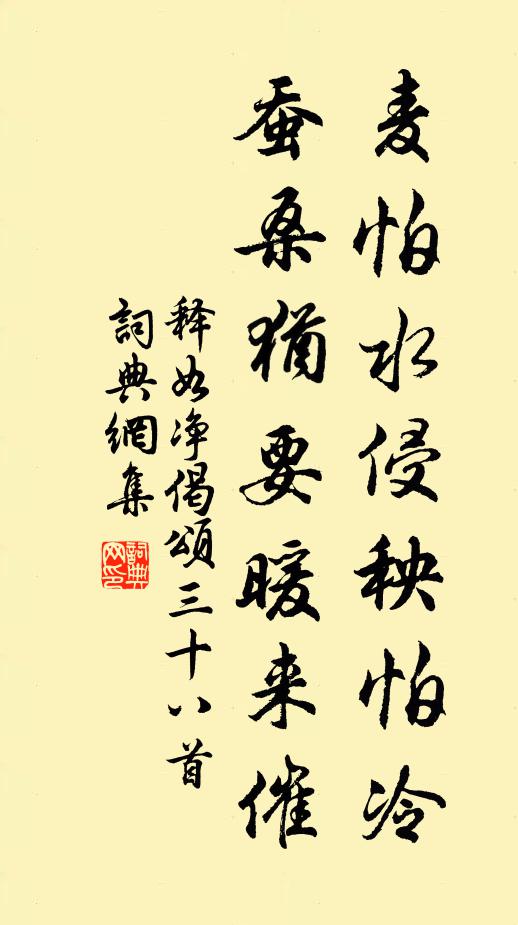 麦怕水侵秧怕冷
蚕桑猶要暖来催
释如净偈頌三十八首
詞典網集
詞典网印